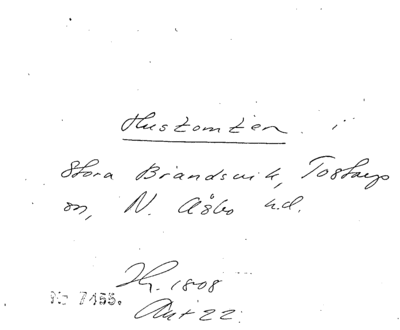 Hustomten
Stora Brandsvik, Tostarp
sn, N. Åsbo hd.
1808
Nr 7455.
22